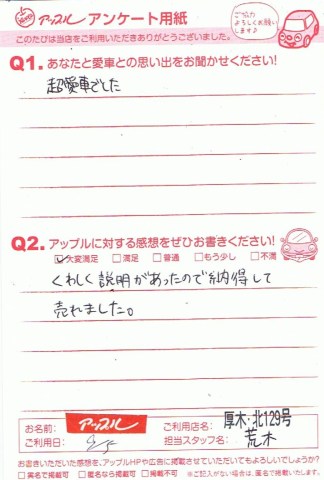 アップル アンケート用紙
ご協力
よろしくお願い
します♪
このたびは当店をご利用いただきありがとうございました。
Q1. あなたと愛車との思い出をお聞かせください!
超愛車でした
Q2. アップルに対する感想をぜひお書きください!
☑大変満足 □満足 □普通 □もう少し □不満
くわしく説明があったので納得して
売れました。
お名前: アップル
ご利用店名: 厚木・北129号
ご利用日:
担当スタッフ名: 荒木
お書きいただいた感想を、アップルHPや広告に掲載させていただいてもよろしいでしょうか?
□実名で掲載可 □匿名なら掲載可 □掲載不可 ※ご記入がない場合は、匿名で掲載いたします。